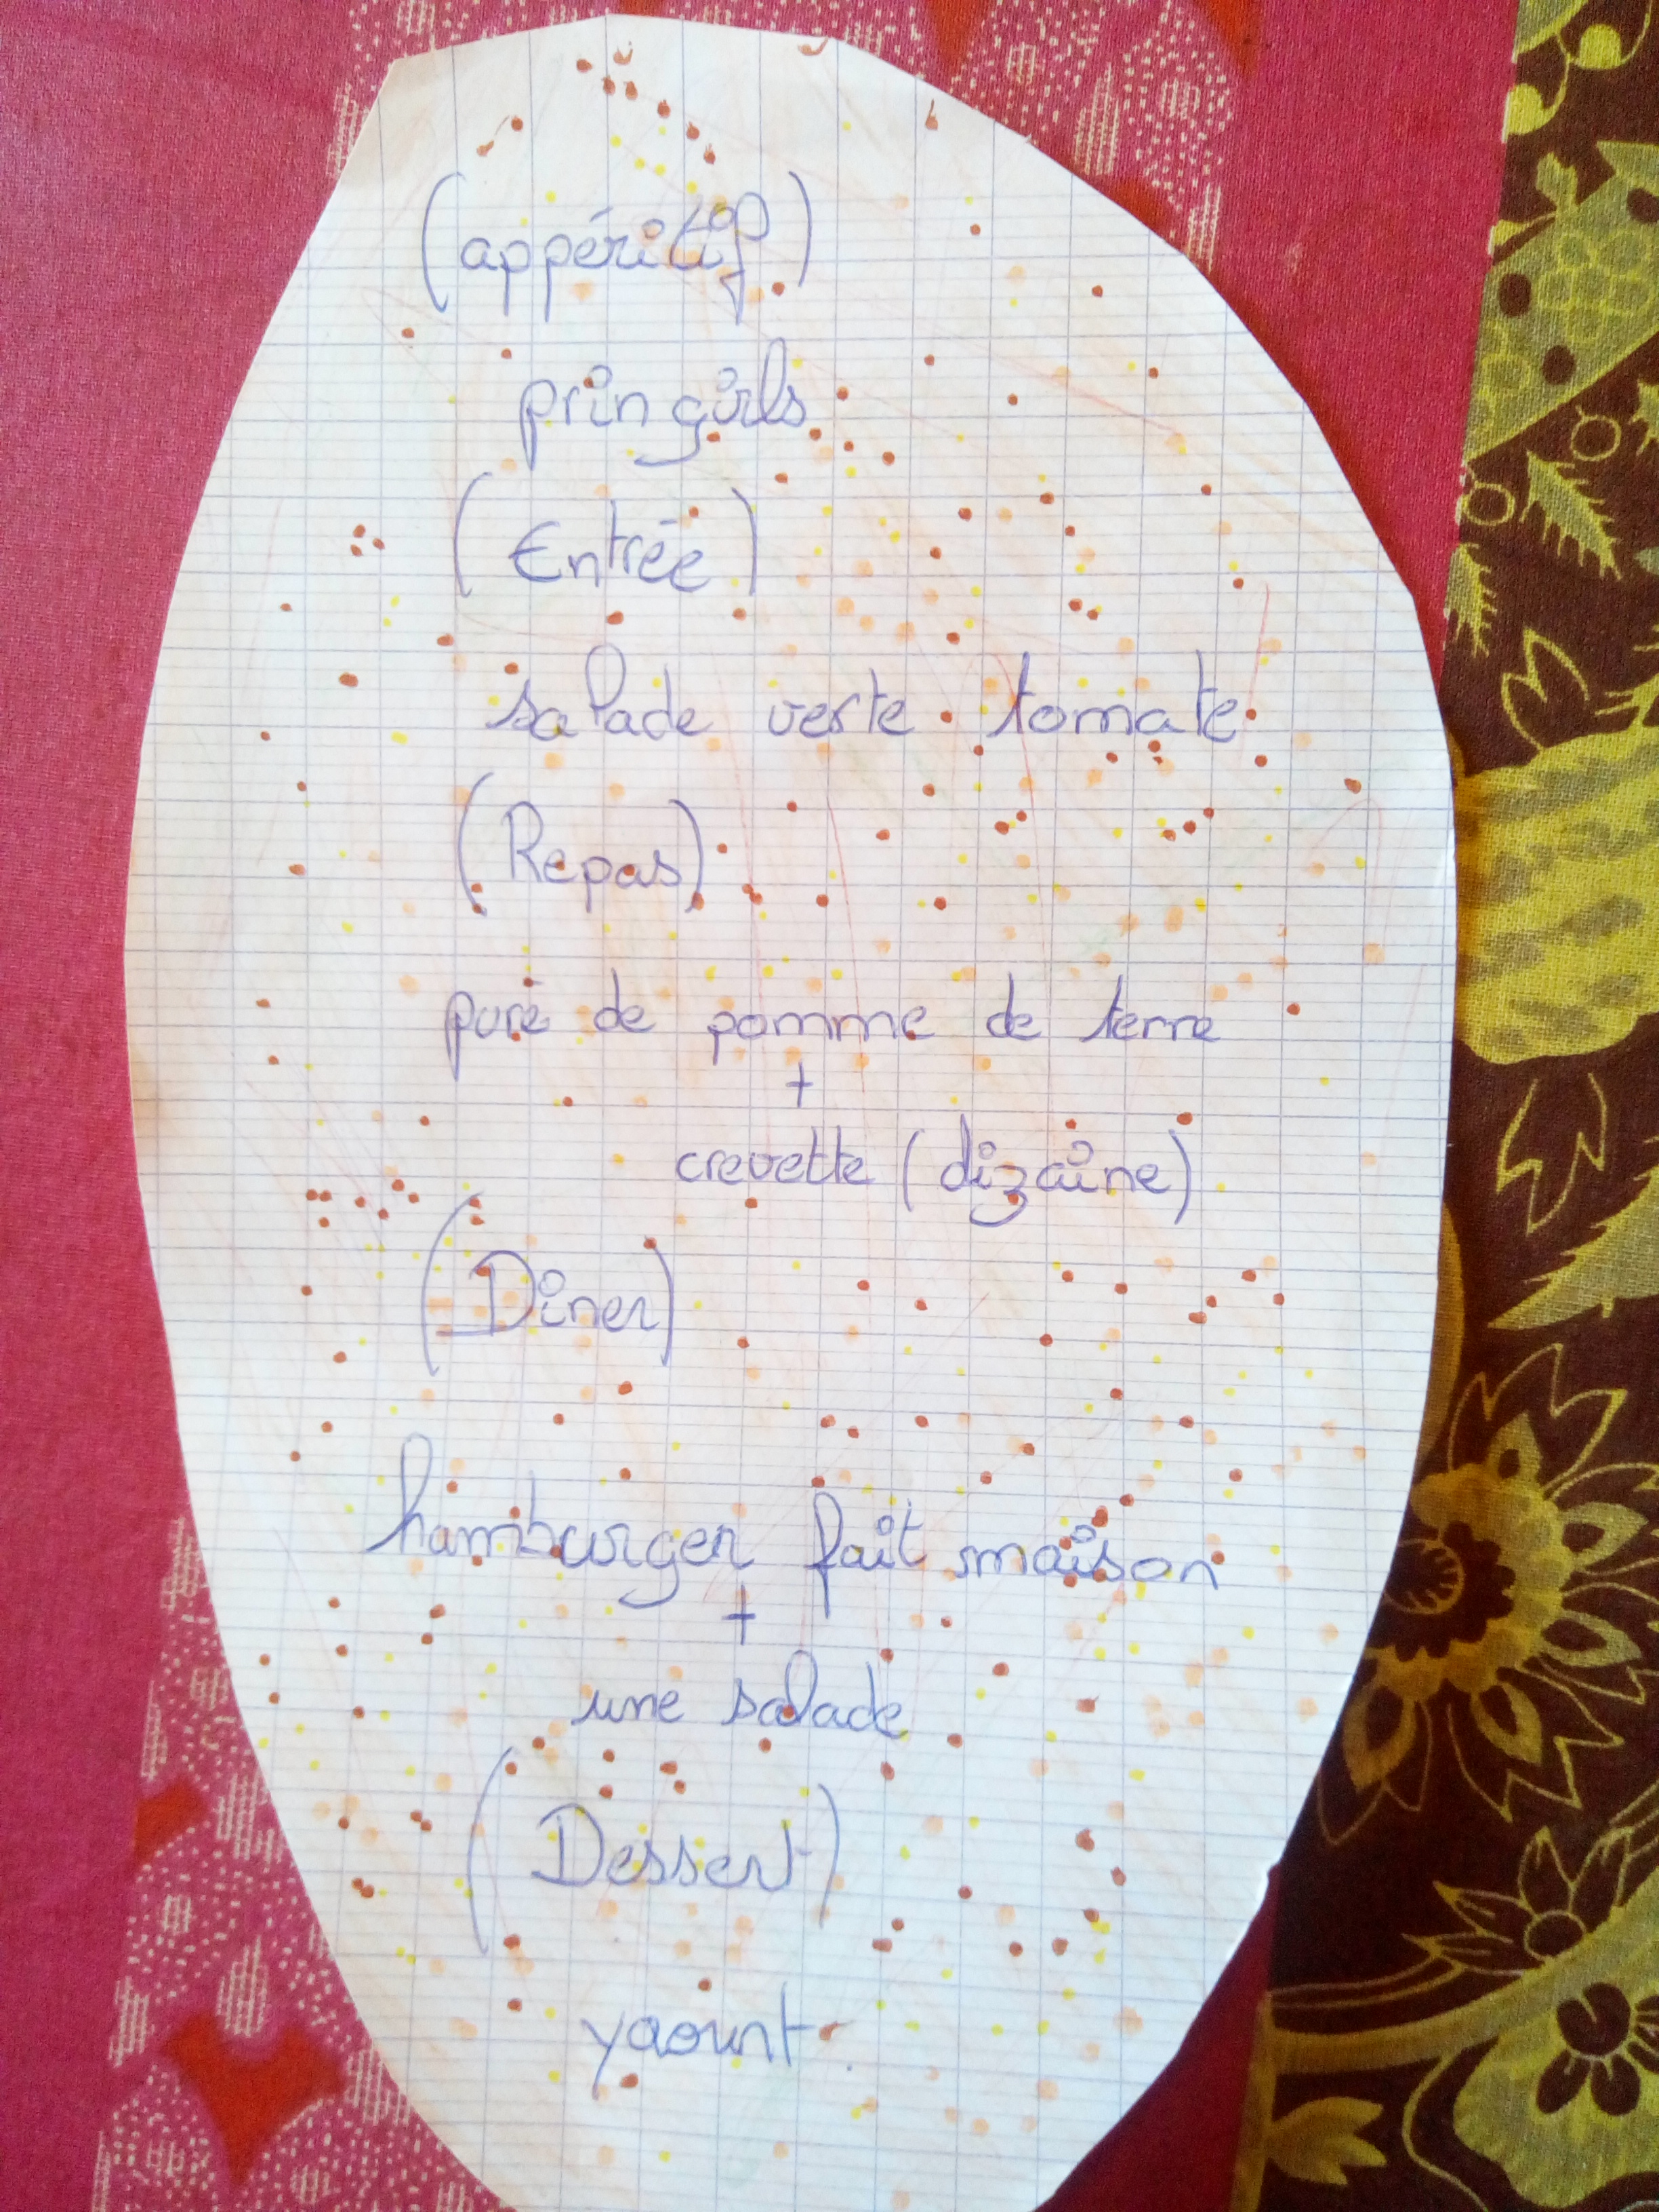 (appéritif)
pringirls
(Entrée)
salade verte tomate
(Repas)
puré de pomme de terre
+
crevette (dizaine)
(Diner)
hamburger fait maison
+
une salade
(Dessert)
yaourt.